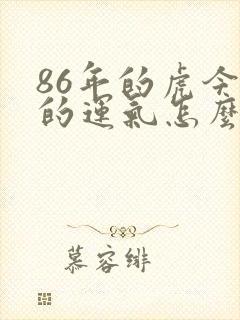 86年的虎今
的運氣怎麼
慕容緋